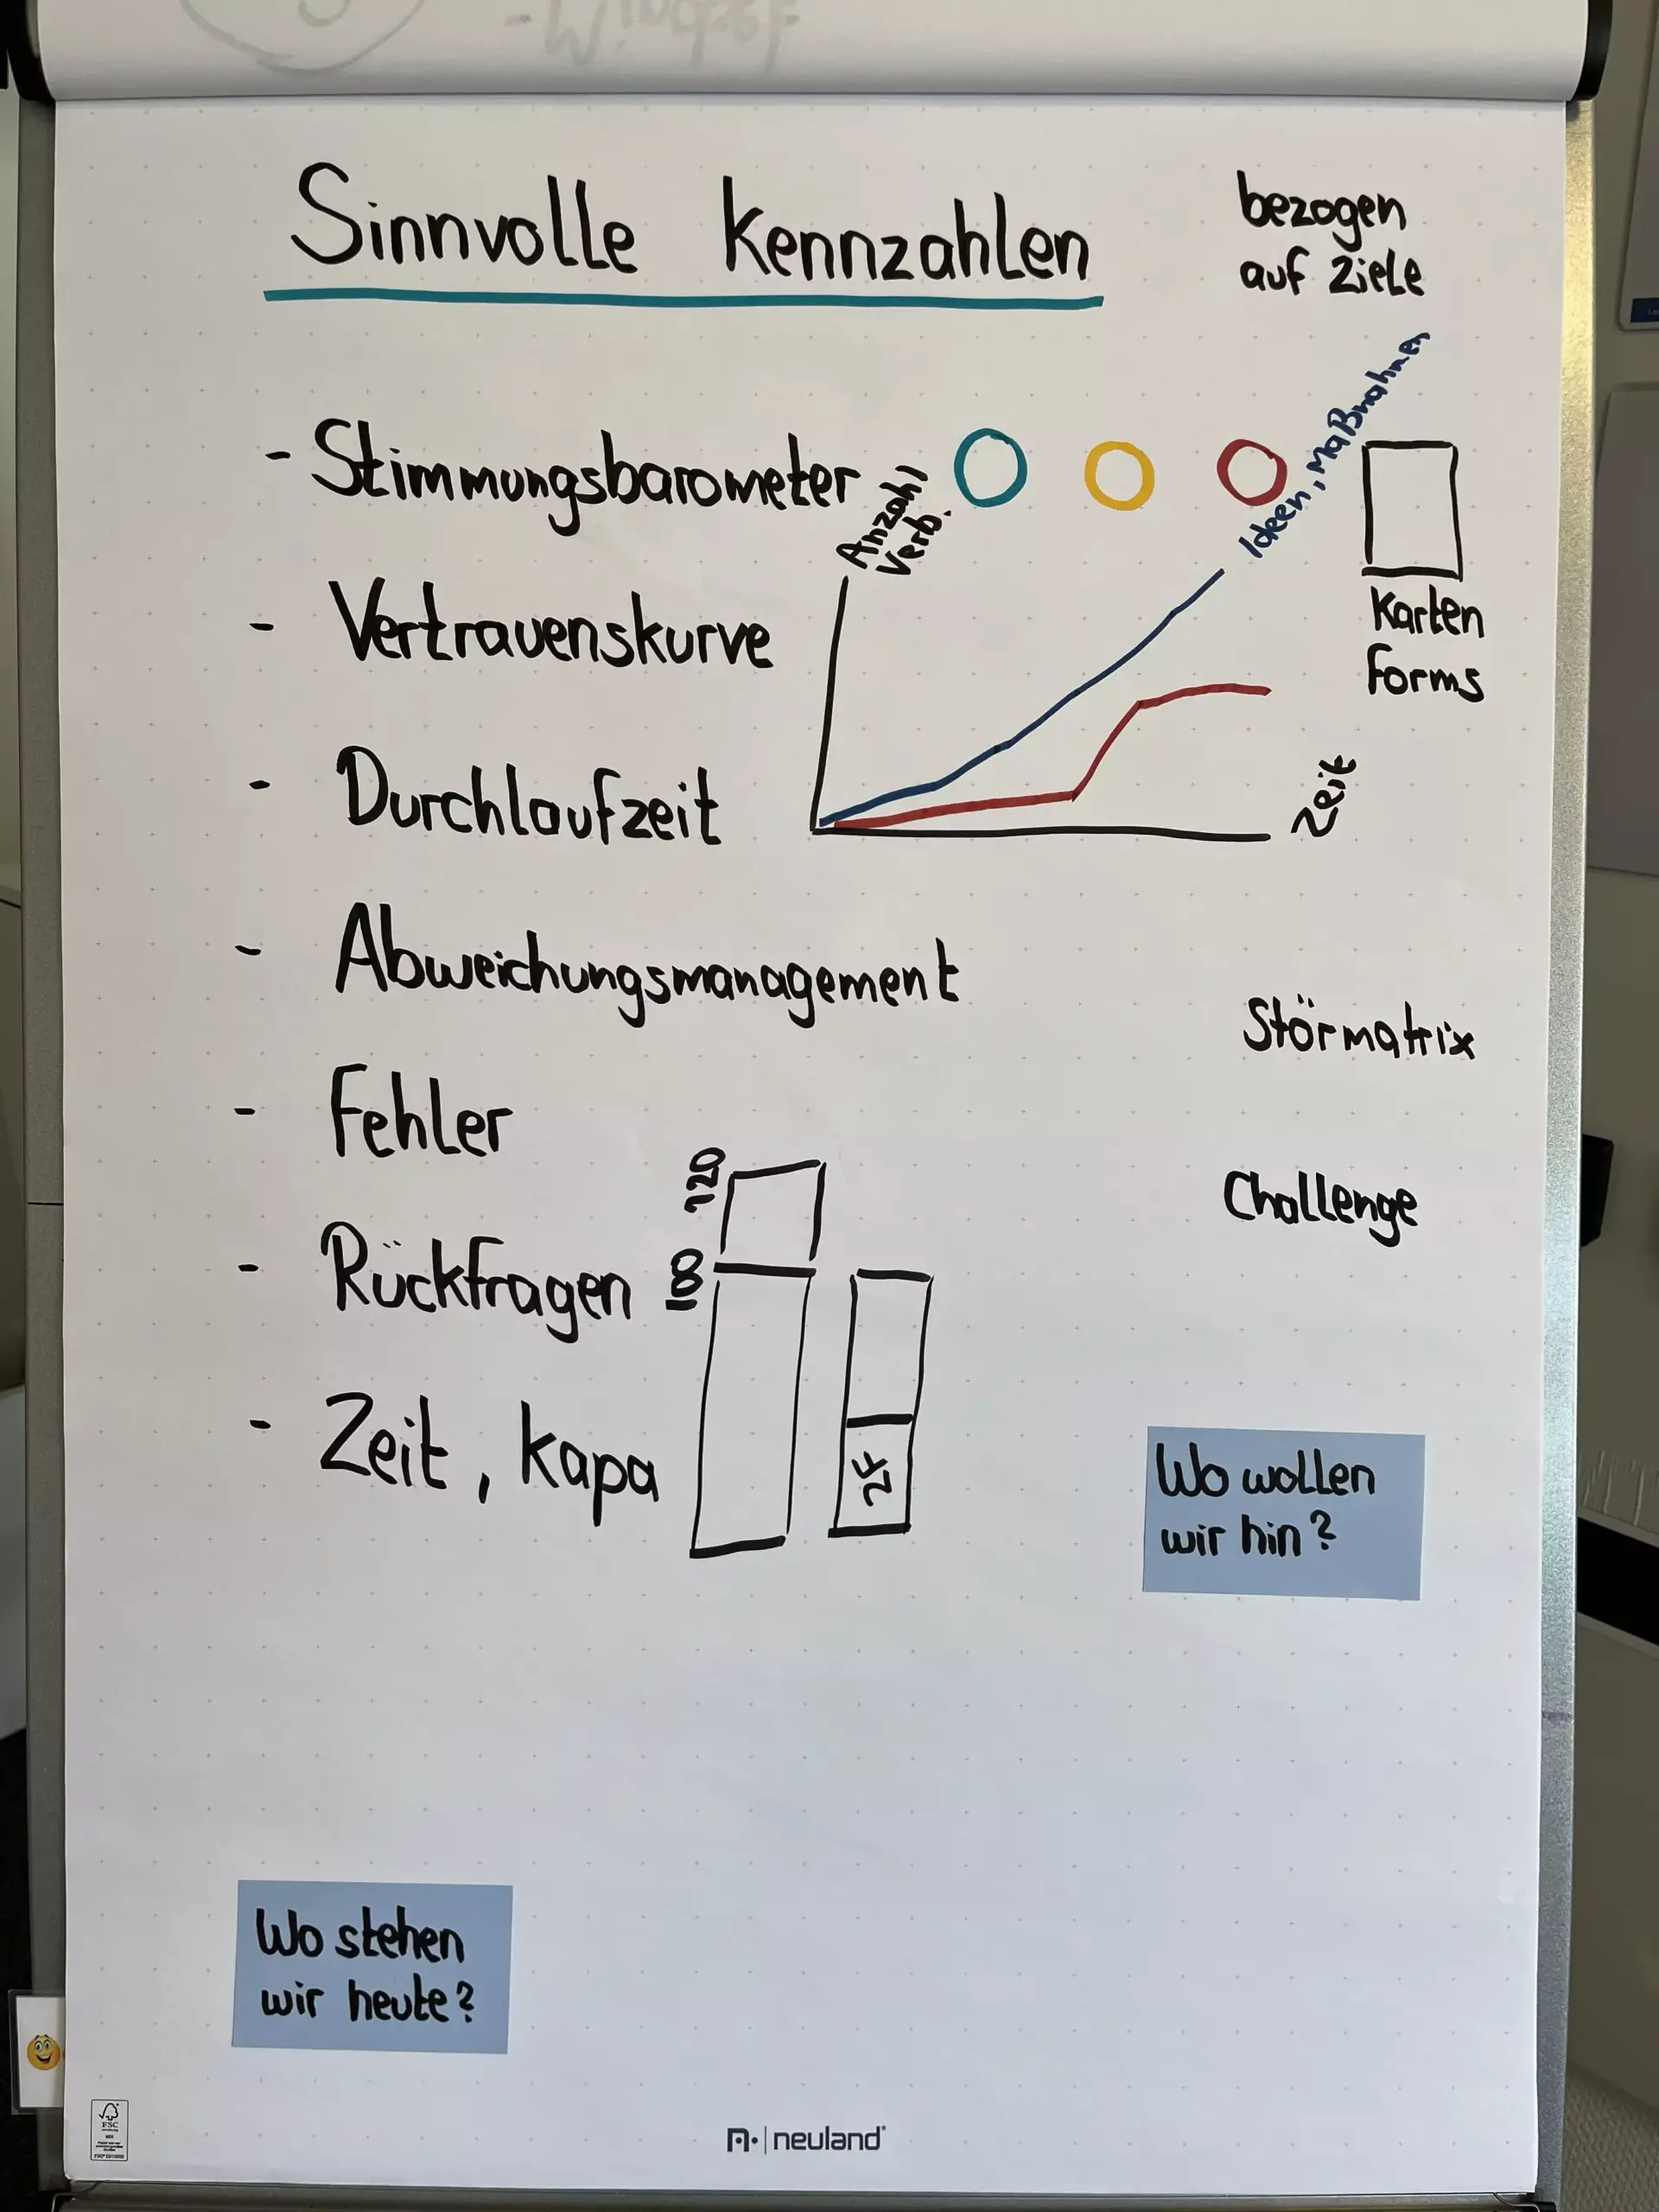 Sinnvolle Kennzahlen
bezogen
auf Ziele
- Stimmungsbarometer
Anzahl
Verb.
Ideen, Maßnahmen
Karten
Forms
- Vertrauenskurve
- Durchlaufzeit
Zeit
- Abweichungsmanagement
Störmatrix
- Fehler
120
Challenge
- Rückfragen
- Zeit, Kapa
Wo wollen
wir hin?
Wo stehen
wir heute?
FSC
neuland